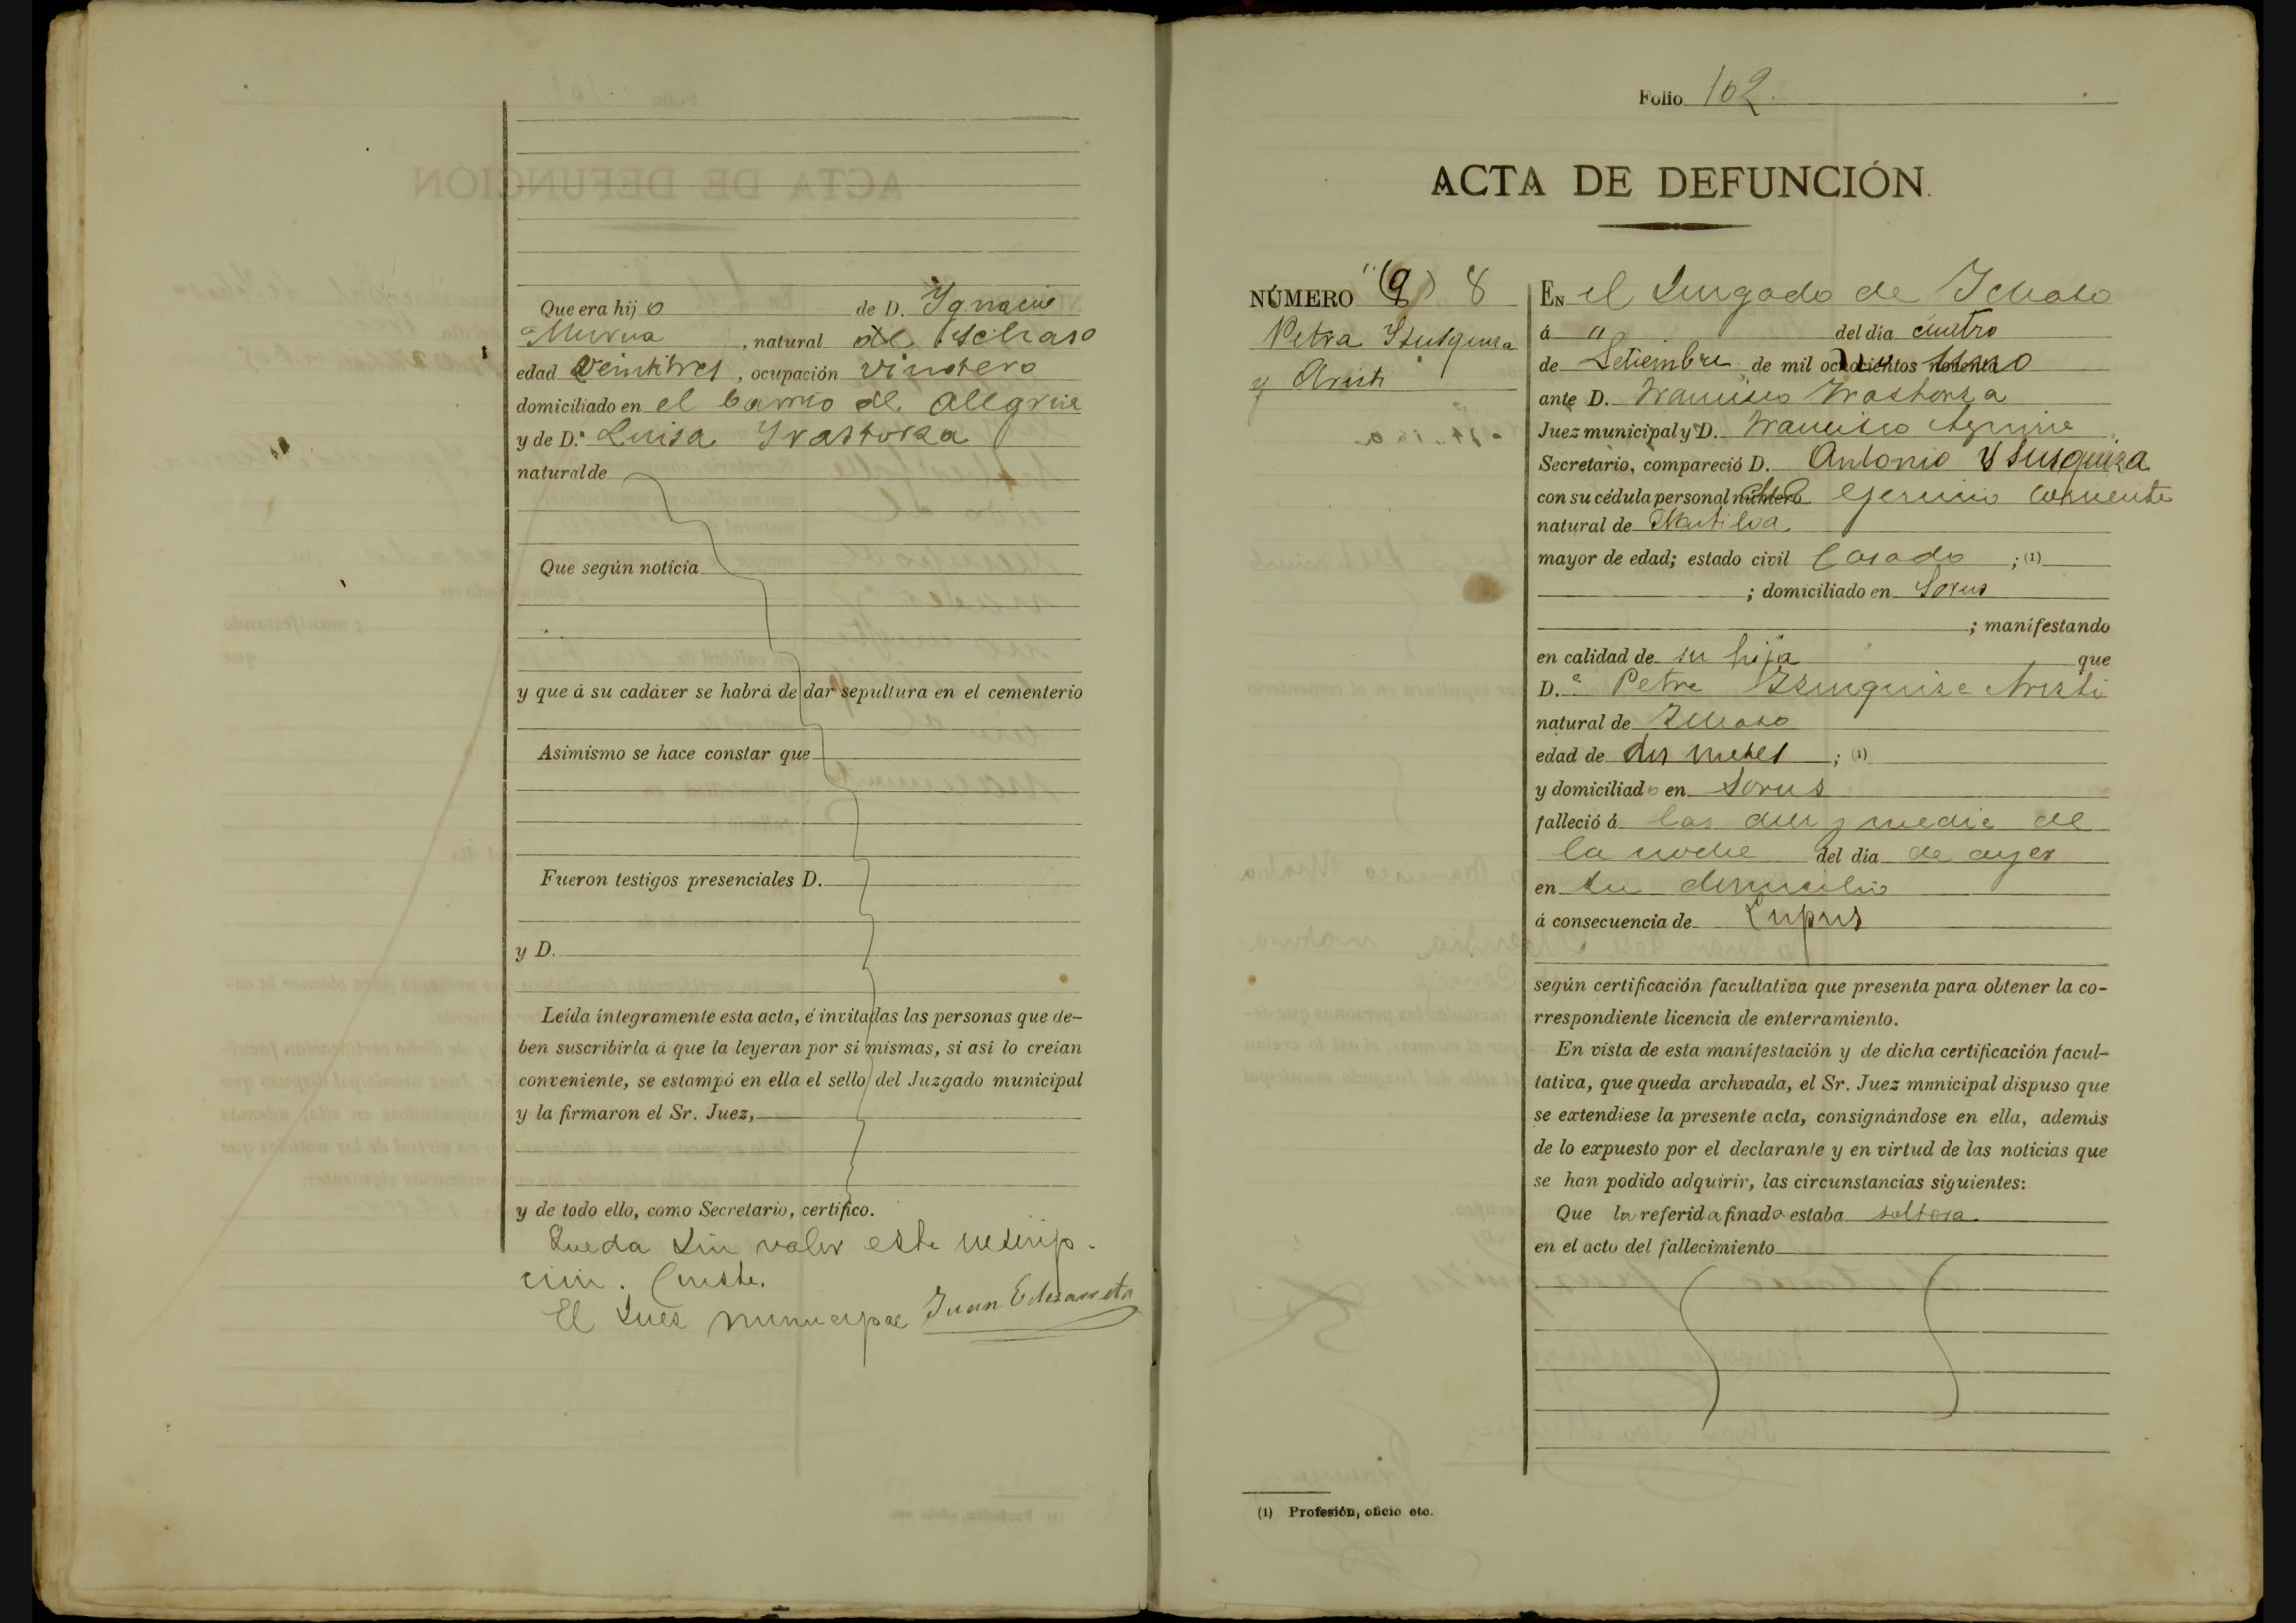 Que era hijo de D. Ygnacio
Murua, natural de Ichaso
edad veintitres, ocupación
domiciliado en el barrio de Alegria
y de D.ª Luisa Yrastorza
natural de
Que según noticia
y que á su cadáver se habrá de dar sepultura en el cementerio
Asimismo se hace constar que
Fueron testigos presenciales D.
y D.
Leída íntegramente esta acta, é invitadas las personas que de-
ben suscribirla á que la leyeran por sí mismas, si así lo creían
conveniente, se estampó en ella el sello del Juzgado municipal
y la firmaron el Sr. Juez,
y de todo ello, como Secretario, certifico.
Queda sin valor esta inscrip-
ción. Conste.
El Juez municipal Juan Echezarreta
Folio 102.
ACTA DE DEFUNCIÓN.
NÚMERO (9) 8
Petra Ysusquiza
y Aristi
EN el Jusgado de Ichaso
á " del día cuatro
de Setiembre de mil ochocientos noventa
ante D. Francisco Yrastorza
Juez municipal y D. Francisco Aguirre
Secretario, compareció D. Antonio Ysusquiza
con su cédula personal número ejercicio corriente
natural de Mutiloa
mayor de edad; estado civil Casado ; (1)
; domiciliado en Sorus
; manifestando
en calidad de su hija que
D.ª Petra Ysusquiza Aristi
natural de Ichaso
edad de dos meses ; (1)
y domiciliado en Sorus
falleció á las diez y media de
la noche del día de ayer
en su domicilio
á consecuencia de Lupus
según certificación facultativa que presenta para obtener la co-
rrespondiente licencia de enterramiento.
En vista de esta manifestación y de dicha certificación facul-
tativa, que queda archivada, el Sr. Juez municipal dispuso que
se extendiese la presente acta, consignándose en ella, además
de lo expuesto por el declarante y en virtud de las noticias que
se han podido adquirir, las circunstancias siguientes:
Que la referida finada estaba soltera
en el acto del fallecimiento
(1) Profesión, oficio etc.